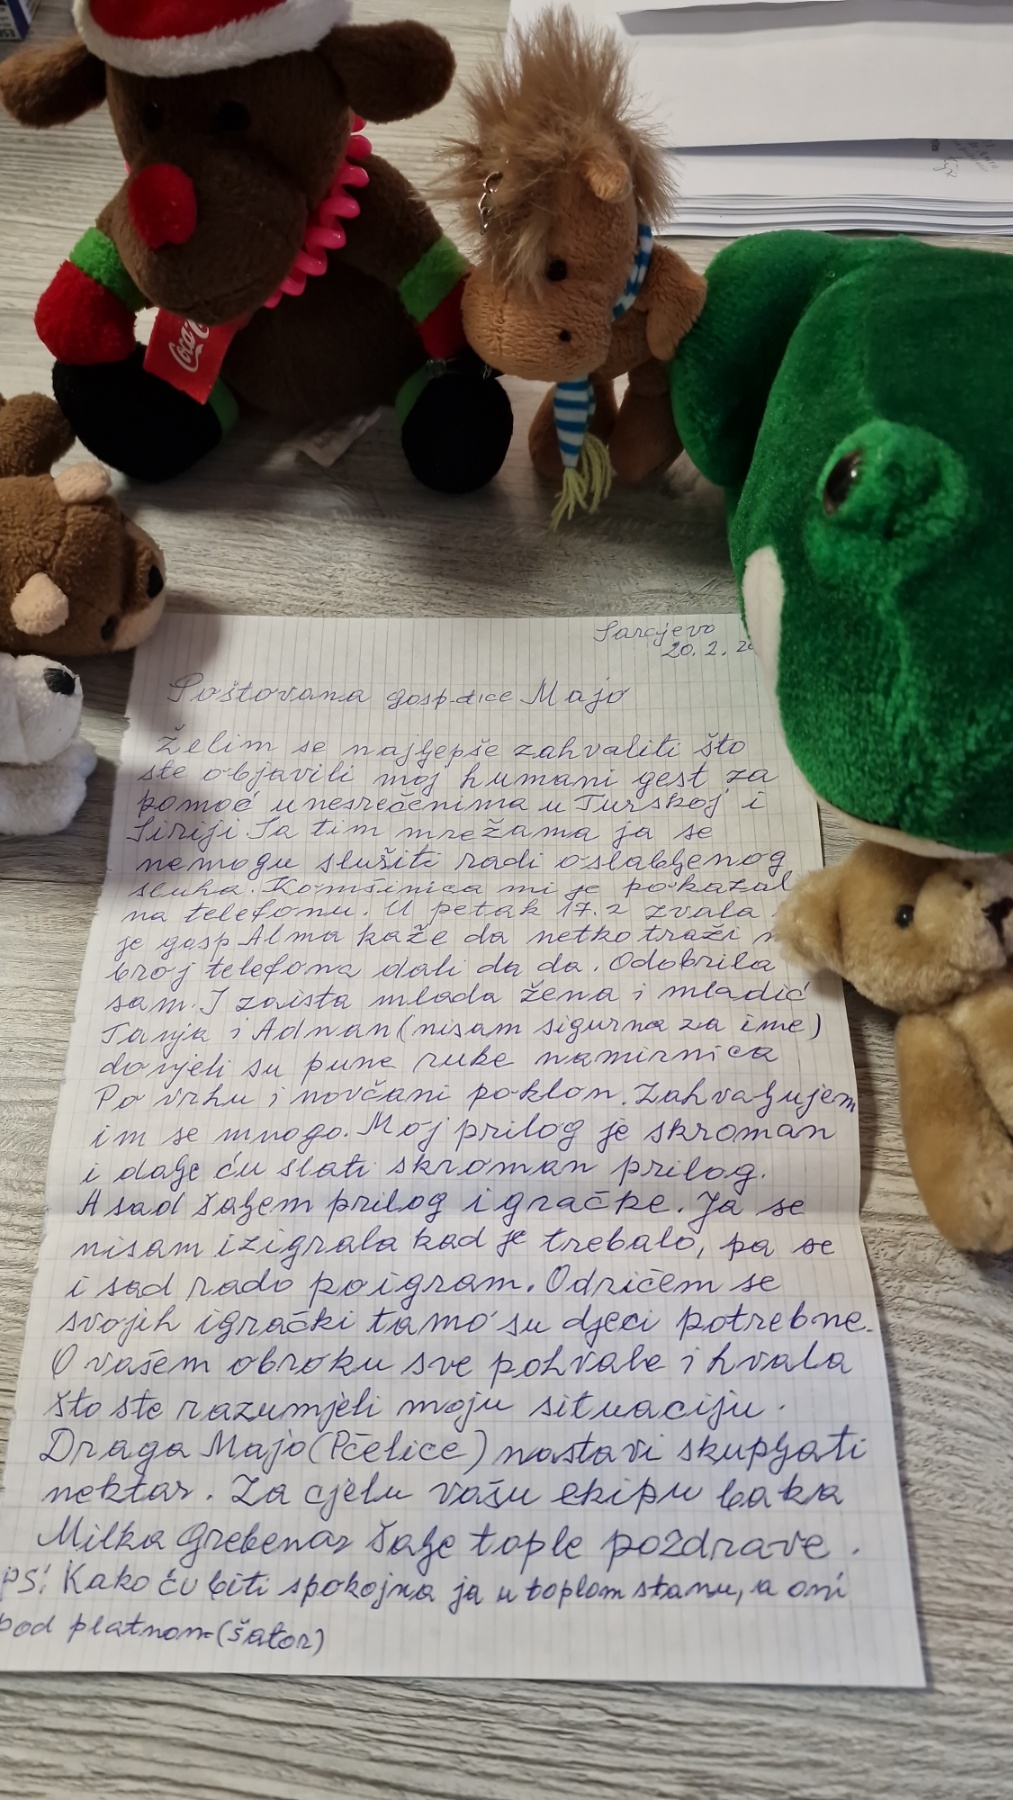 Coca
Sarajevo
20. 2. 2
Poštovana gosp-dice Majo
Želim se najljepše zahvaliti što
ste objavili moj humani gest za
pomoć unesrećenima u Turskoj i
Siriji Sa tim mrežama ja se
nemogu služiti radi oslabljenog
sluha. Komšinica mi je pokazal
na telefonu. U petak 17.2 zvala
je gosp Alma kaže da netko traži
broj telefona dali da da. Odobrila
sam. I zaista mlada žena i mladić
Tanja i Adnan (nisam sigurna za ime)
donjeli su pune ruke namirnica
Po vrhu i novčani poklon. Zahvaljujem
im se mnogo. Moj prilog je skroman
i dalje ću slati skroman prilog.
A sad šaljem prilog igračke. Ja se
nisam izigrala kad je trebalo, pa se
i sad rado poigram. Odričem se
svojih igrački tamo su djeci potrebne.
O vašem obroku sve pohvale i hvala
što ste razumjeli moju situaciju.
Draga Majo (Pčelice) nastavi skupljati
nektar. Za cjelu vašu ekipu baka
Milka Grebenar šalje tople pozdrave.
PS! Kako ću biti spokojna ja u toplom stanu, a oni
pod platnom (šator)